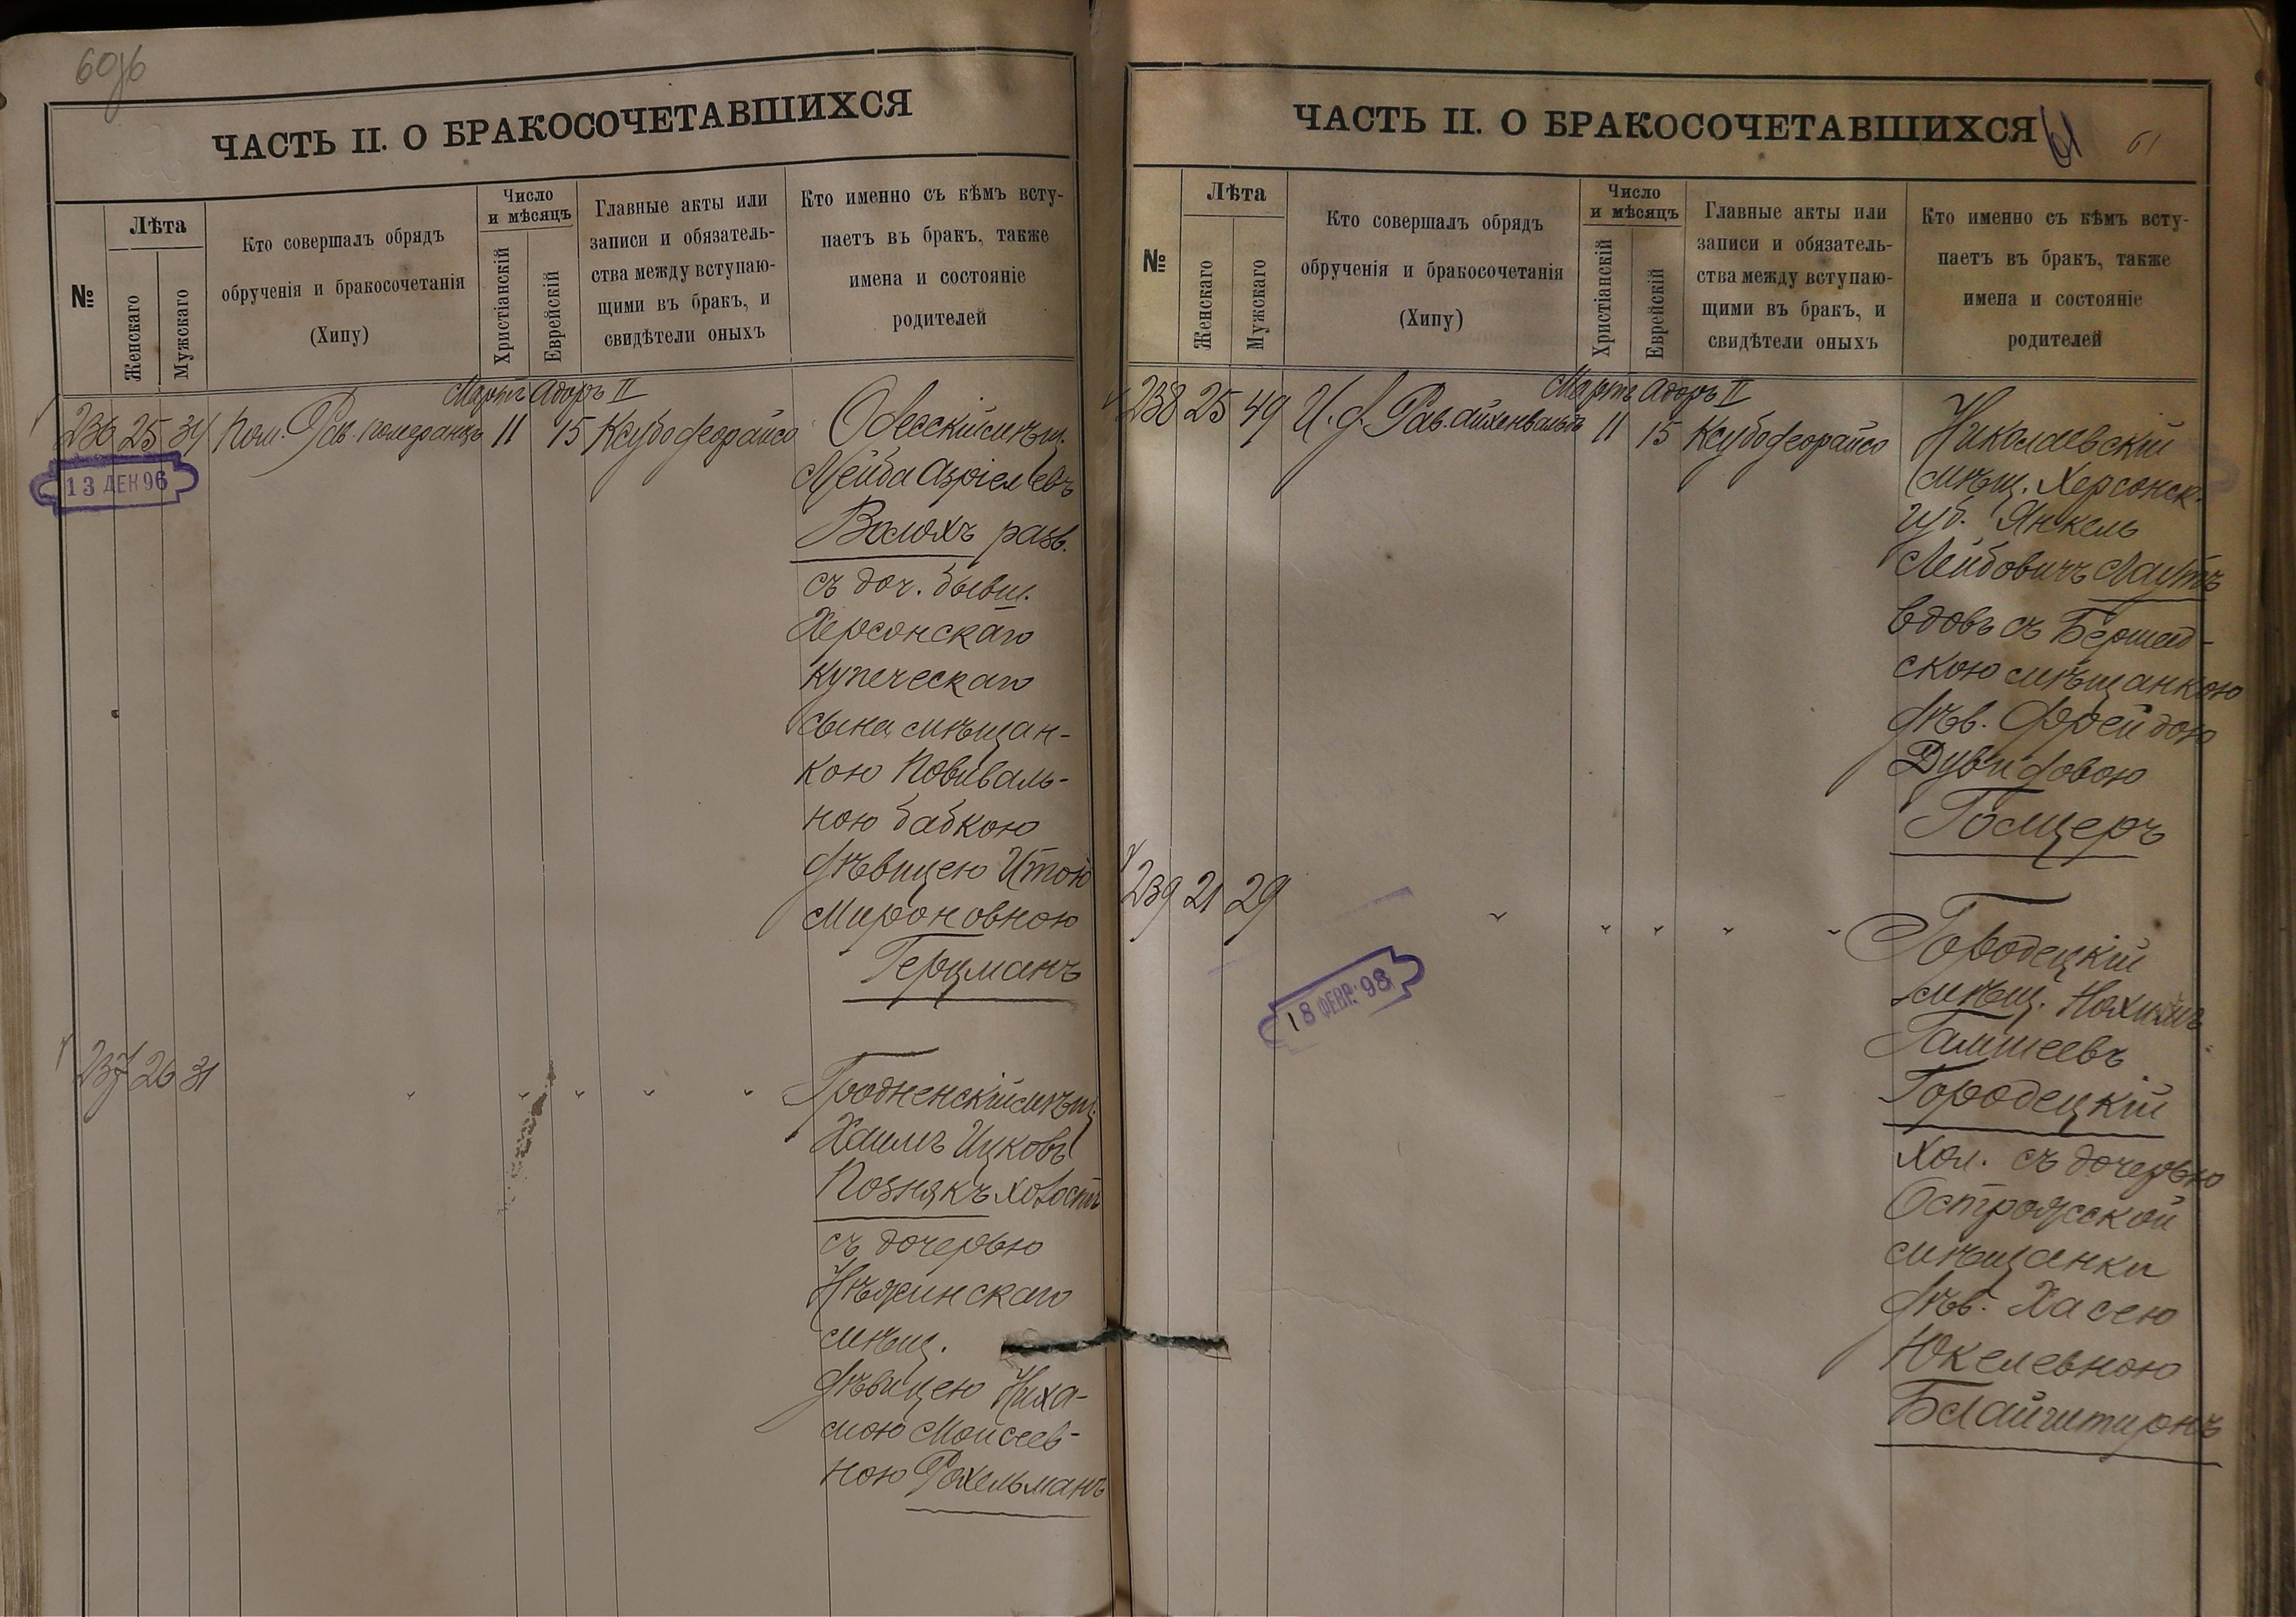 60об
ЧАСТЬ II. О БРАКОСОЧЕТАВШИХСЯ
№
Лѣта
Женскаго
Мужскаго
Кто совершалъ обрядъ
обрученія и бракосочетанія
(Хипу)
Число
и мѣсяцъ
Христіанскій
Еврейскій
Главные акты или
записи и обязатель-
ства между вступаю-
щими въ бракъ, и
свидѣтели оныхъ
Кто именно съ кѣмъ всту-
паетъ въ бракъ, также
имена и состояніе
родителей
Мартъ Адоръ II
236 25 34 Пом. Рав. Померанцъ 11 15 Ксубо деорайсо
13 ДЕК 96
Одесскій мѣщ.
Лейба Азріелевъ
Волохъ разв.
съ доч. бывш.
Херсонскаго
купеческаго
сына мѣщан-
кою повиваль-
ною бабкою
дѣвицею Итою
Мироновною
Герцманъ
237 26 31
Гродненскій мѣщ.
Хаимъ Ицковъ
Познякъ холост
съ дочерью
Нѣжинскаго
мѣщ.
дѣвицею Ниха-
мою Моисеев-
ною Рахельманъ
ЧАСТЬ II. О БРАКОСОЧЕТАВШИХСЯ
61
61
№
Лѣта
Женскаго
Мужскаго
Кто совершалъ обрядъ
обрученія и бракосочетанія
(Хипу)
Число
и мѣсяцъ
Христіанскій
Еврейскій
Главные акты или
записи и обязатель-
ства между вступаю-
щими въ бракъ, и
свидѣтели оныхъ
Кто именно съ кѣмъ всту-
паетъ въ бракъ, также
имена и состояніе
родителей
Мартъ Адоръ II
238 25 49 И. д. Рав. Айхенвальдъ 11 15 Ксубо деорайсо
Николаевскій
мѣщ. Херсонск.
губ. Янкель
Лейбовичъ Лаутъ
вдовъ съ Бершад-
скою мѣщанкою
дѣв. Фрейдою
Дувидовою
Голцеръ
239 21 29
18 ФЕВР. 98
Городецкій
мѣщ. Нахимъ
Гамшеевъ
Городецкій
хол. съ дочерью
Острожской
мѣщанки
дѣв. Хасею
Юкелевною
Блайштиронъ